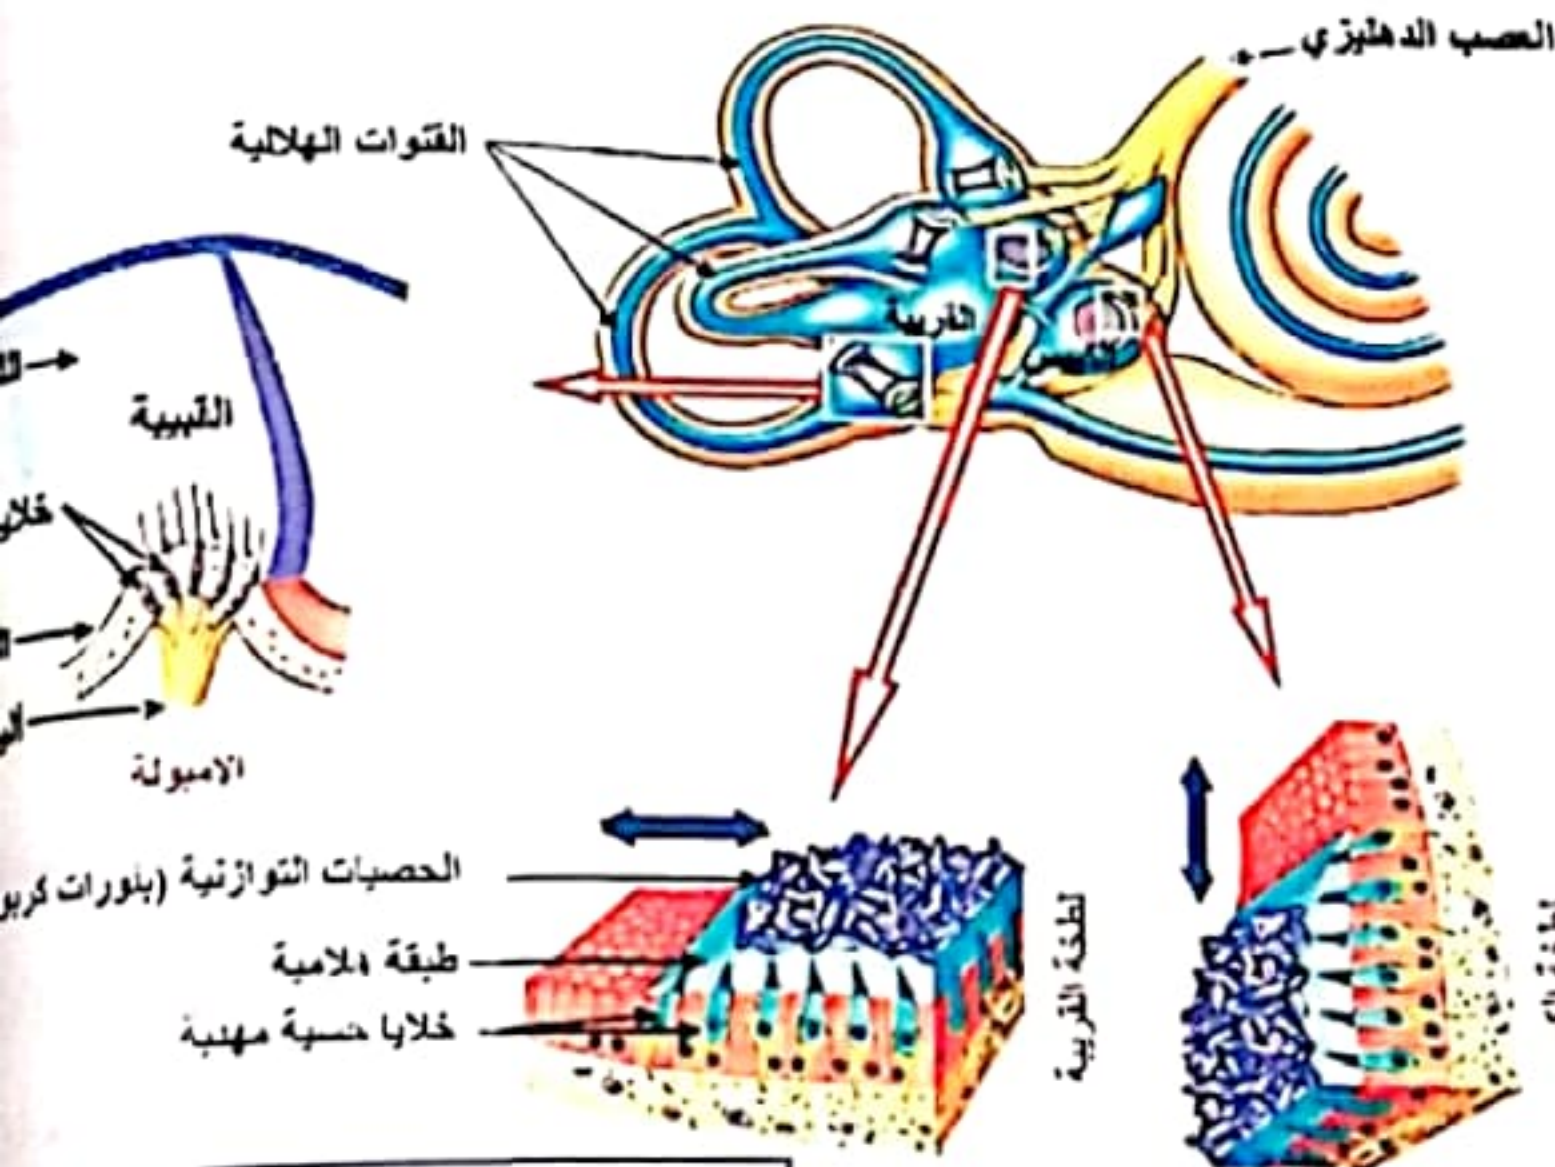 العصب الدهليزي
القنوات الهلالية
القريبة
الكييس
القبيبة
خلايا
الامبولة
الحصيات التوازنية (بلورات كربو
طبقة هلامية
خلايا حسية مهدبة
لطخة القريبة